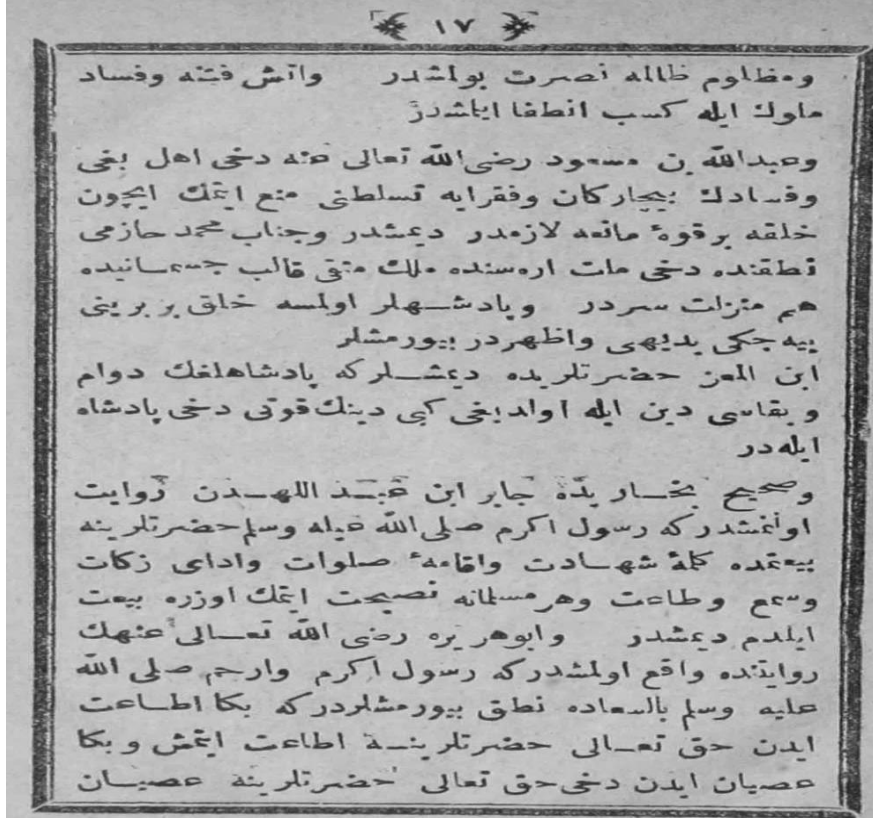 ١٧
ومظلوم ظالمه نصرت بولمشدر واتش فتنه وفساد
ملوك ايله كسب انطفا ايلمشدر
وعبدالله بن مسعود رضى الله تعالى عنه دخى اهل بغى
وفسادك بيچاركان وفقرايه تسلطنى منع ايتمك ايچون
خلقه برقوهٔ مانعه لازمدر ديمشدر وجناب محمد حازمى
نطقنده دخى ملت ارهسنده ملك متقى قالب جسمانيده
هم منزلت سردر وپادشهلر اولمسه خلق بر برينى
ييه جكى بديهى واظهردر بيورمشلر
ابن المعز حضرتلريده ديمشلركه پادشاهلغك دوام
و بقاسى دين ايله اولديغى كبى دينك قوتى دخى پادشاه
ايله در
وصحيح بخاريده جابر ابن عبد اللهدن روايت
اولنمشدركه رسول اكرم صلى الله عليه وسلم حضرتلرينه
بيعتمده كلمهٔ شهادت واقامهٔ صلوات واداى زكات
وسمع وطاعت وهر مسلمانه نصيحت ايتمك اوزره بيعت
ايلدم ديمشدر وابوهريره رضى الله تعالى عنهك
روايتنده واقع اولمشدركه رسول اكرم وارحم صلى الله
عليه وسلم بالسعاده نطق بيورمشلردركه بكا اطاعت
ايدن حق تعالى حضرتلرينه اطاعت ايتمش و بكا
عصيان ايدن دخى حق تعالى حضرتلرينه عصيان